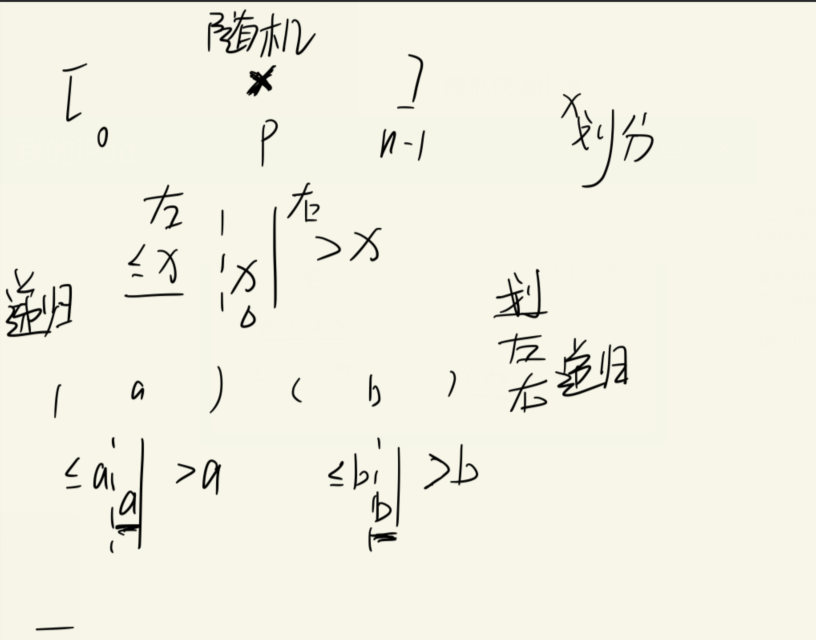 随机
[ x ]
0 p n-1 x划分
左 右
≤x x >x
递归
划
左
右 递归
( a ) ( b )
≤a a >a ≤b b >b